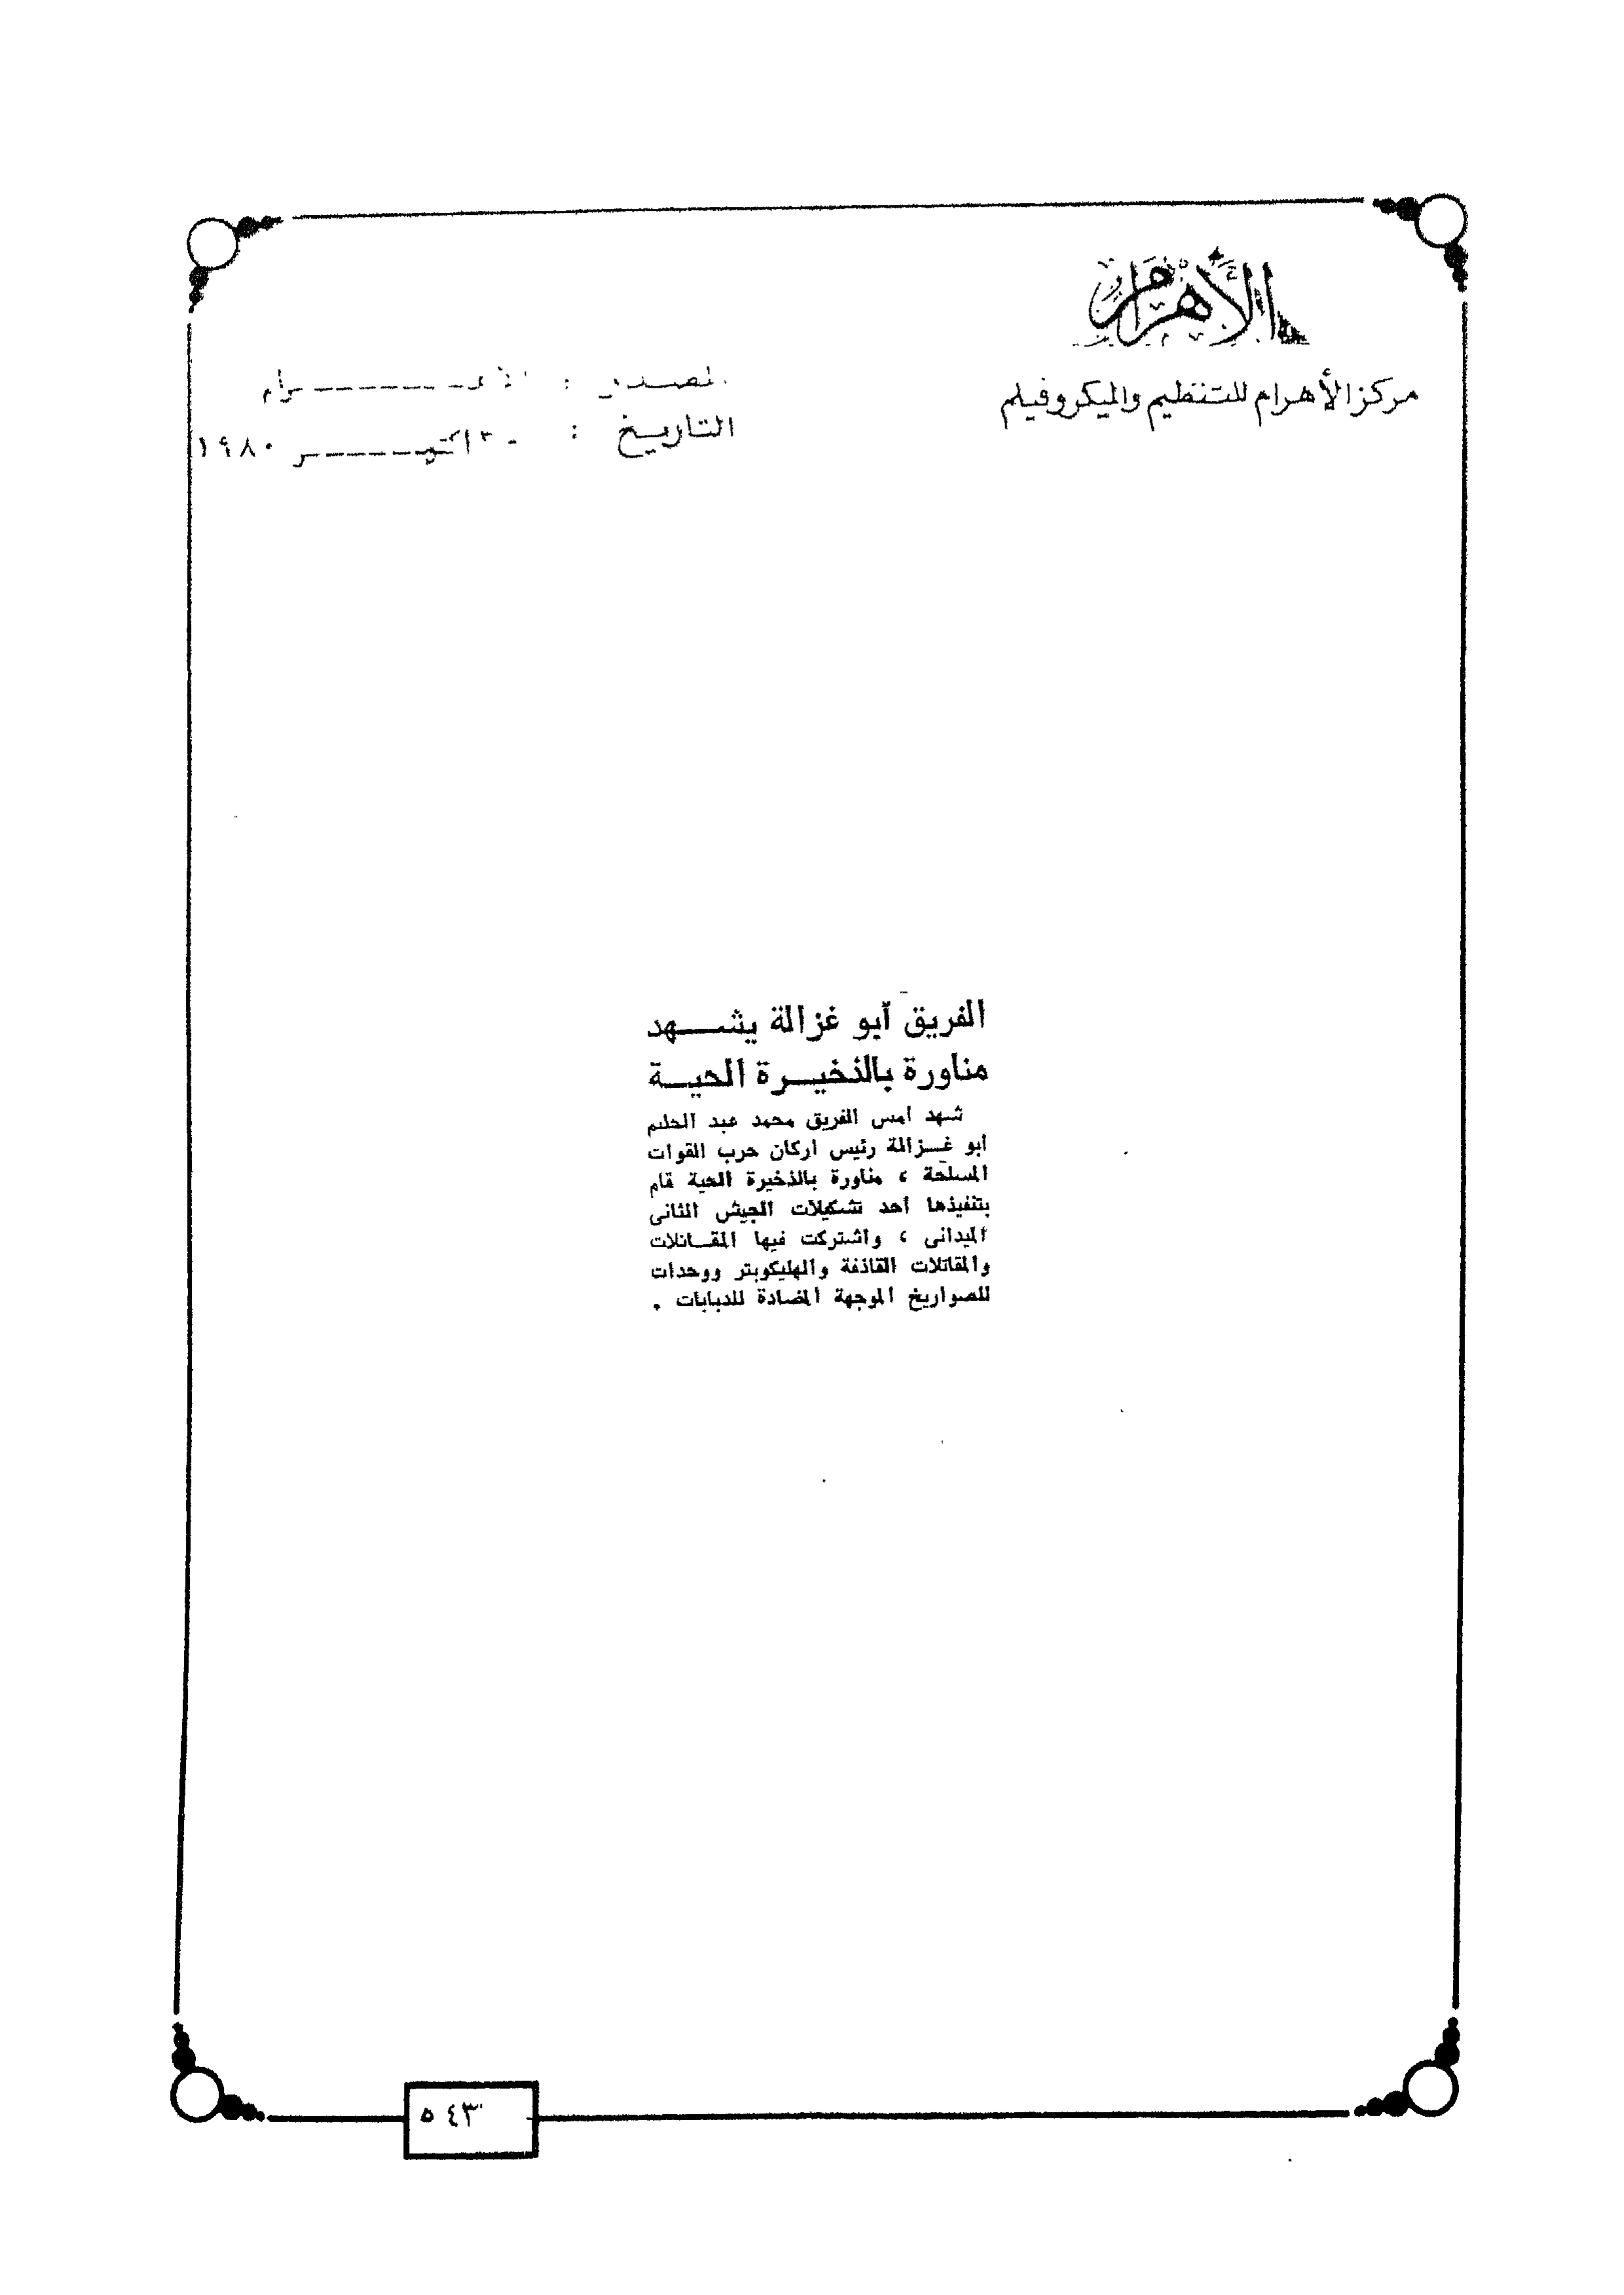 الأهرام
مركز الأهرام للتنظيم والميكروفيلم
المصدر : الأهـــــــرام
التاريخ : اكتوبـــــــر ١٩٨٠
الفريق أبو غزالة يشـــهد
مناورة بالذخيـــرة الحيـــة
شهد أمس الفريق محمد عبد الحليم
أبو غـــزالة رئيس اركان حرب القوات
المسلحة ، مناورة بالذخيرة الحية قام
بتنفيذها أحد تشكيلات الجيش الثانى
الميدانى ، واشتركت فيها المقـــاتلات
والمقاتلات القاذفة والهليكوبتر ووحدات
للصواريخ الموجهة المضادة للدبابات .
٥٤٣